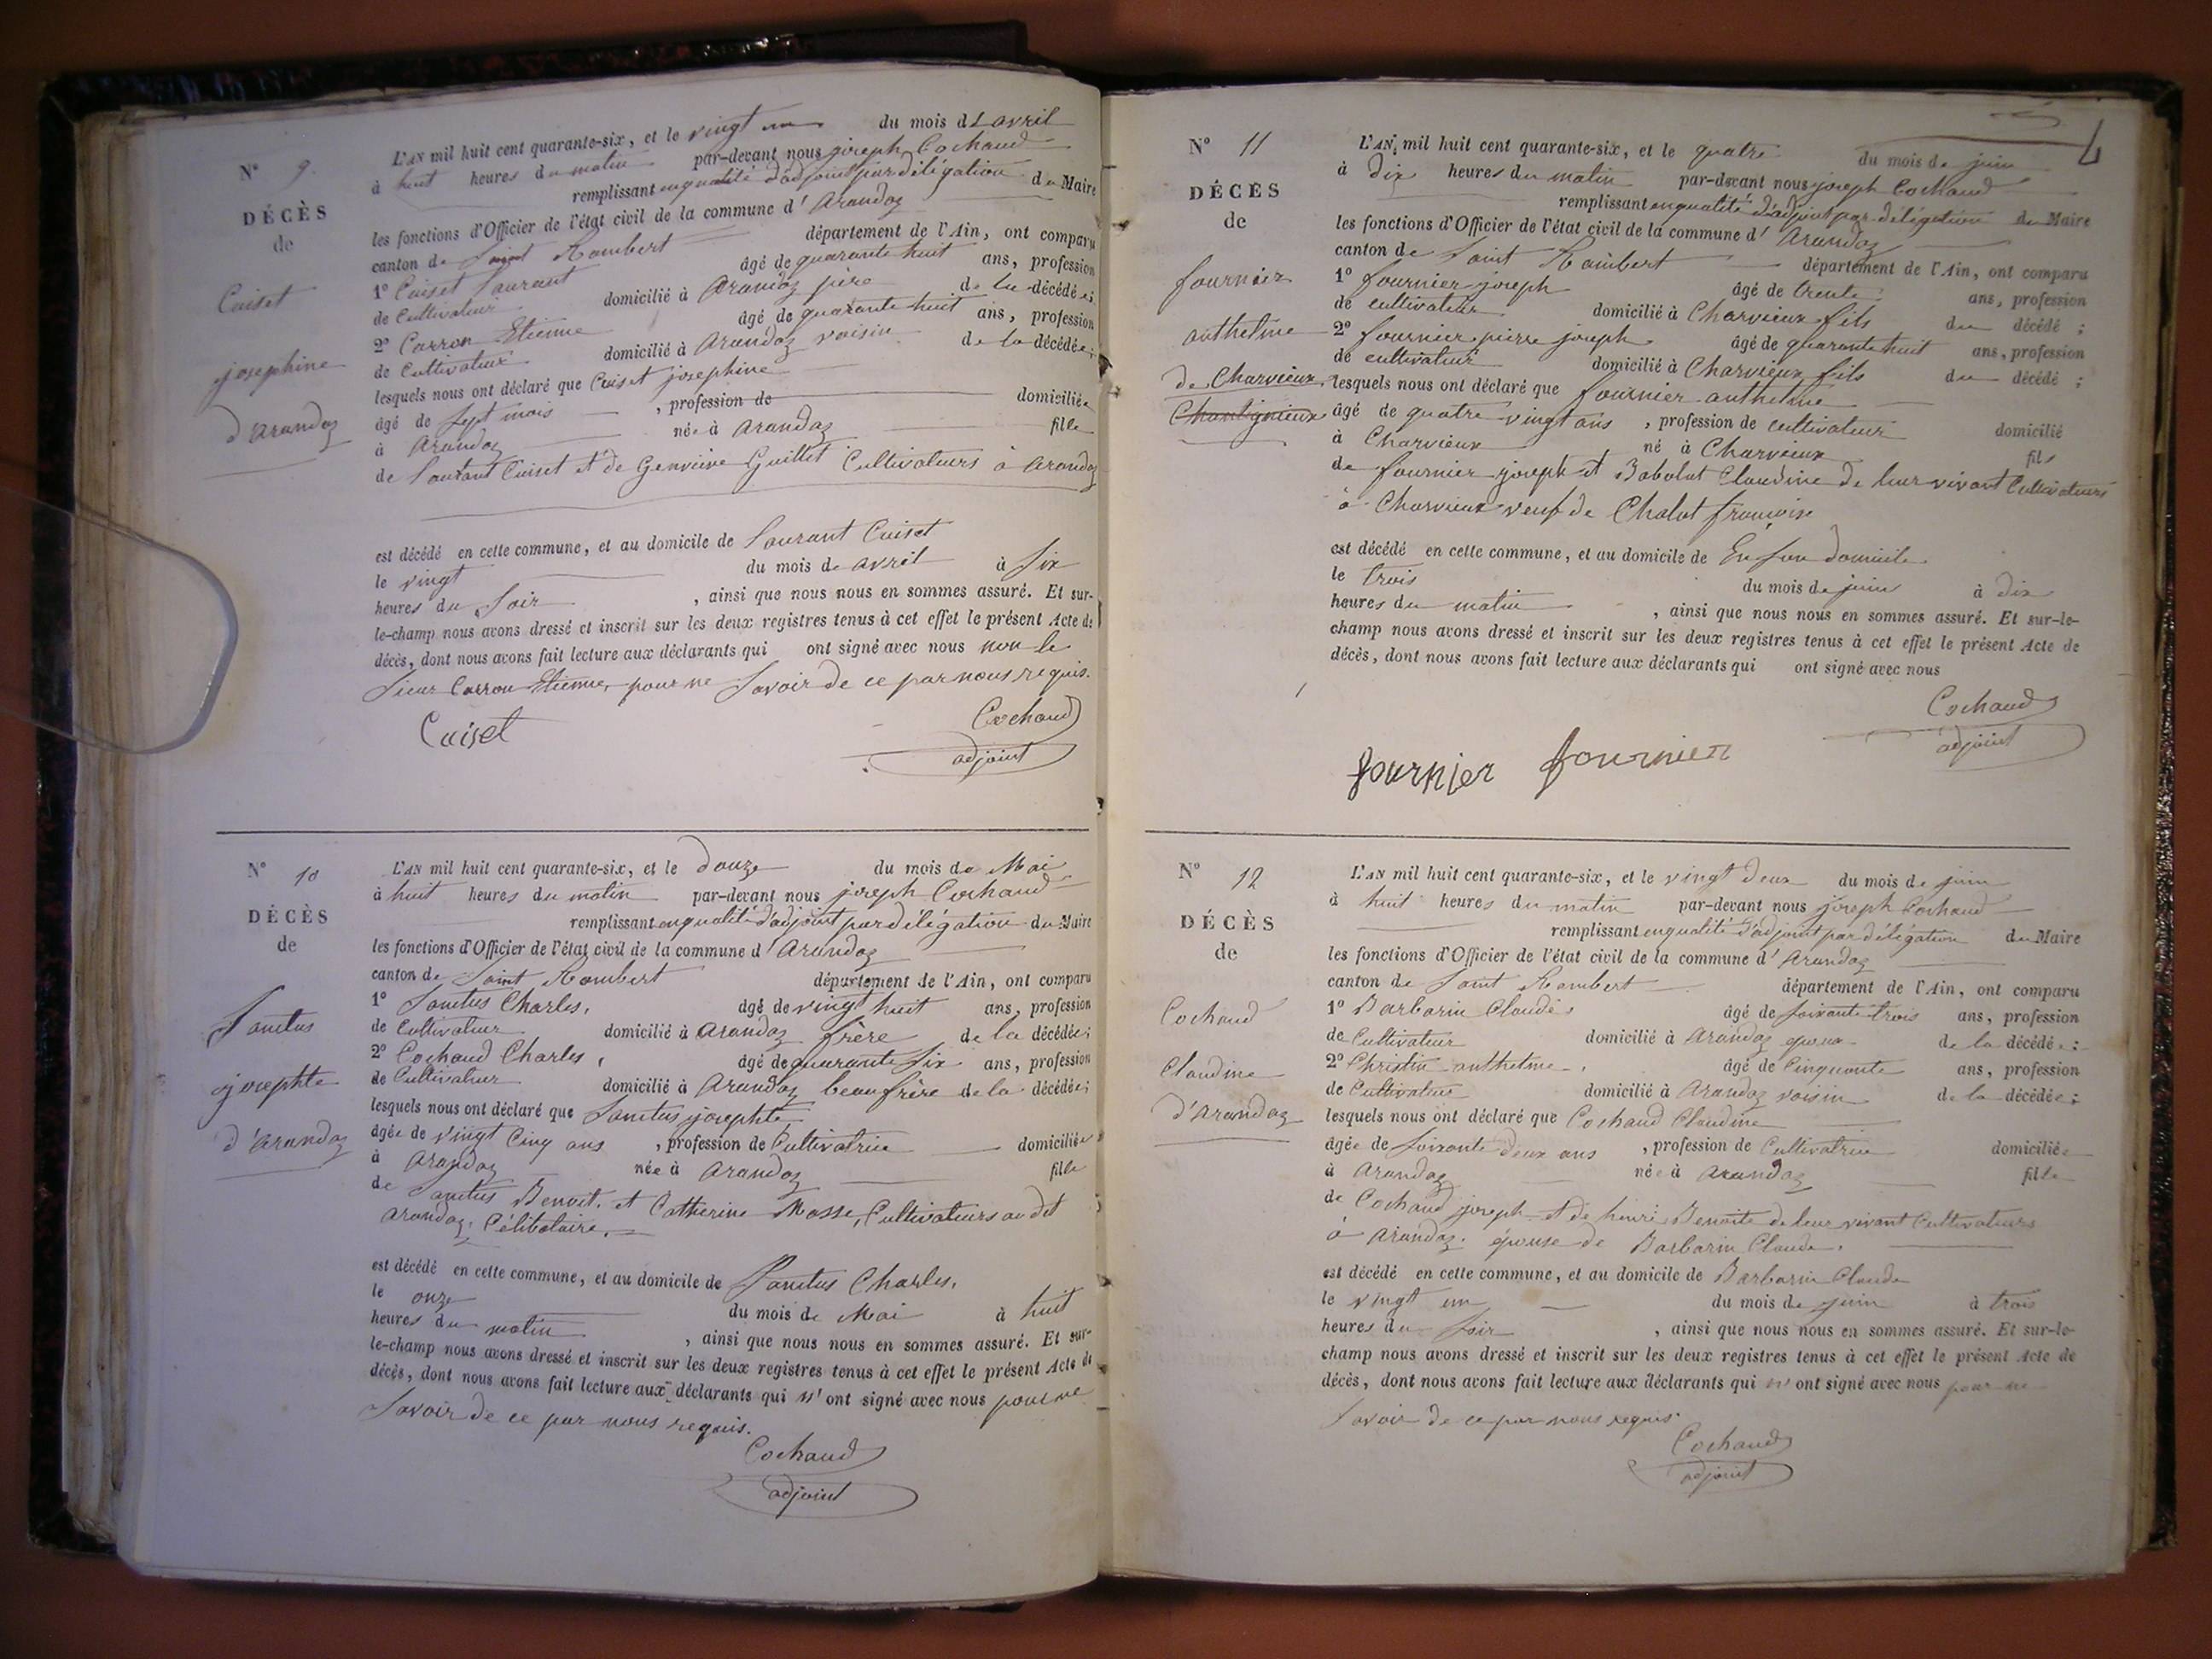 N° 9.
DÉCÈS
de
Cuiset
josephine
d'arandaz
L'AN mil huit cent quarante-six, et le vingt un du mois d'avril
à huit heures du matin par-devant nous joseph Cochaud
remplissant en qualité d'adjoint par délégation du Maire
les fonctions d'Officier de l'état civil de la commune d'Arandaz
canton de Saint Rambert département de l'Ain, ont comparu
1° Cuiset Laurant âgé de quarante huit ans, profession
de Cultivateur domicilié à Arandaz père de la décédée;
2° Carron Etienne âgé de quarante huit ans, profession
de Cultivateur domicilié à Arandaz voisin de la décédée;
lesquels nous ont déclaré que Cuiset josephine
âgé de sept mois, profession de domiciliée
à Arandaz née à Arandaz fille
de Laurant Cuiset et de Genevieve Guillet Cultivateurs à Arandaz
est décédé en cette commune, et au domicile de Laurant Cuiset
le vingt du mois de avril à Six
heures du Soir, ainsi que nous nous en sommes assuré. Et sur-
le-champ nous avons dressé et inscrit sur les deux registres tenus à cet effet le présent Acte de
décès, dont nous avons fait lecture aux déclarants qui ont signé avec nous non le
Sieur Carron Etienne, pour ne Savoir de ce par nous requis.
Cuiset Cochaud
adjoint
N° 10
DÉCÈS
de
Sanctus
josephte
d'arandaz
L'AN mil huit cent quarante-six, et le douze du mois de Mai
à huit heures du matin par-devant nous joseph Cochaud
remplissant en qualité d'adjoint par délégation du Maire
les fonctions d'Officier de l'état civil de la commune d'Arandaz
canton de Saint Rambert département de l'Ain, ont comparu
1° Sanctus Charles, âgé de vingt huit ans, profession
de Cultivateur domicilié à Arandaz frère de la décédée;
2° Cochaud Charles, âgé de quarante Six ans, profession
de Cultivateur domicilié à Arandaz beaufrère de la décédée;
lesquels nous ont déclaré que Sanctus josephte
âgée de vingt Cinq ans, profession de Cultivatrice domiciliée
à Arandaz née à Arandaz fille
de Sanctus Benoit, et Catherine Masse, Cultivateurs au dit
Arandaz, Célibataire.
est décédé en cette commune, et au domicile de Sanctus Charles,
le onze du mois de Mai à huit
heures du matin, ainsi que nous nous en sommes assuré. Et sur-
le-champ nous avons dressé et inscrit sur les deux registres tenus à cet effet le présent Acte de
décès, dont nous avons fait lecture aux déclarants qui n'ont signé avec nous pour ne
Savoir de ce par nous requis.
Cochaud
adjoint
N° 11
DÉCÈS
de
fournier
anthelme
de Charvieux
L'AN mil huit cent quarante-six, et le quatre du mois de juin
à Dix heures du matin par-devant nous joseph Cochaud
remplissant en qualité d'adjoint par délégation du Maire
les fonctions d'Officier de l'état civil de la commune d'Arandaz
canton de Saint Rambert département de l'Ain, ont comparu
1° fournier joseph âgé de trente ans, profession
de cultivateur domicilié à Charvieux fils du décédé;
2° fournier pierre joseph âgé de quarante huit ans, profession
de cultivateur domicilié à Charvieux fils du décédé;
lesquels nous ont déclaré que fournier anthelme
âgé de quatre vingt ans, profession de cultivateur domicilié
à Charvieux né à Charvieux fils
de fournier joseph et Babolat Claudine de leur vivant Cultivateurs
à Charvieux veuf de Chalat françoise
est décédé en cette commune, et au domicile de En son domicile
le trois du mois de juin à dix
heures du matin, ainsi que nous nous en sommes assuré. Et sur-le-
champ nous avons dressé et inscrit sur les deux registres tenus à cet effet le présent Acte de
décès, dont nous avons fait lecture aux déclarants qui ont signé avec nous
Cochaud
adjoint
fournier fournier
N° 12
DÉCÈS
de
Cochaud
Claudine
d'Arandaz
L'AN mil huit cent quarante-six, et le vingt deux du mois de juin
à huit heures du matin par-devant nous joseph Cochaud
remplissant en qualité d'adjoint par délégation du Maire
les fonctions d'Officier de l'état civil de la commune d'Arandaz
canton de Saint Rambert département de l'Ain, ont comparu
1° Barbarin Claude âgé de Soixante trois ans, profession
de Cultivateur domicilié à Arandaz epoux de la décédée;
2° Christin anthelme, âgé de Cinquante ans, profession
de Cultivateur domicilié à Arandaz voisin de la décédée;
lesquels nous ont déclaré que Cochaud Claudine
âgée de Soixante deux ans, profession de Cultivatrice domiciliée
à Arandaz née à Arandaz fille
de Cochaud joseph et de henri Benoite de leur vivant Cultivateurs
à Arandaz. épouse de Barbarin Claude.
est décédé en cette commune, et au domicile de Barbarin Claude
le vingt un du mois de juin à trois
heures du Soir, ainsi que nous nous en sommes assuré. Et sur-le-
champ nous avons dressé et inscrit sur les deux registres tenus à cet effet le présent Acte de
décès, dont nous avons fait lecture aux déclarants qui n'ont signé avec nous pour ne
Savoir de ce par nous requis.
Cochaud
adjoint